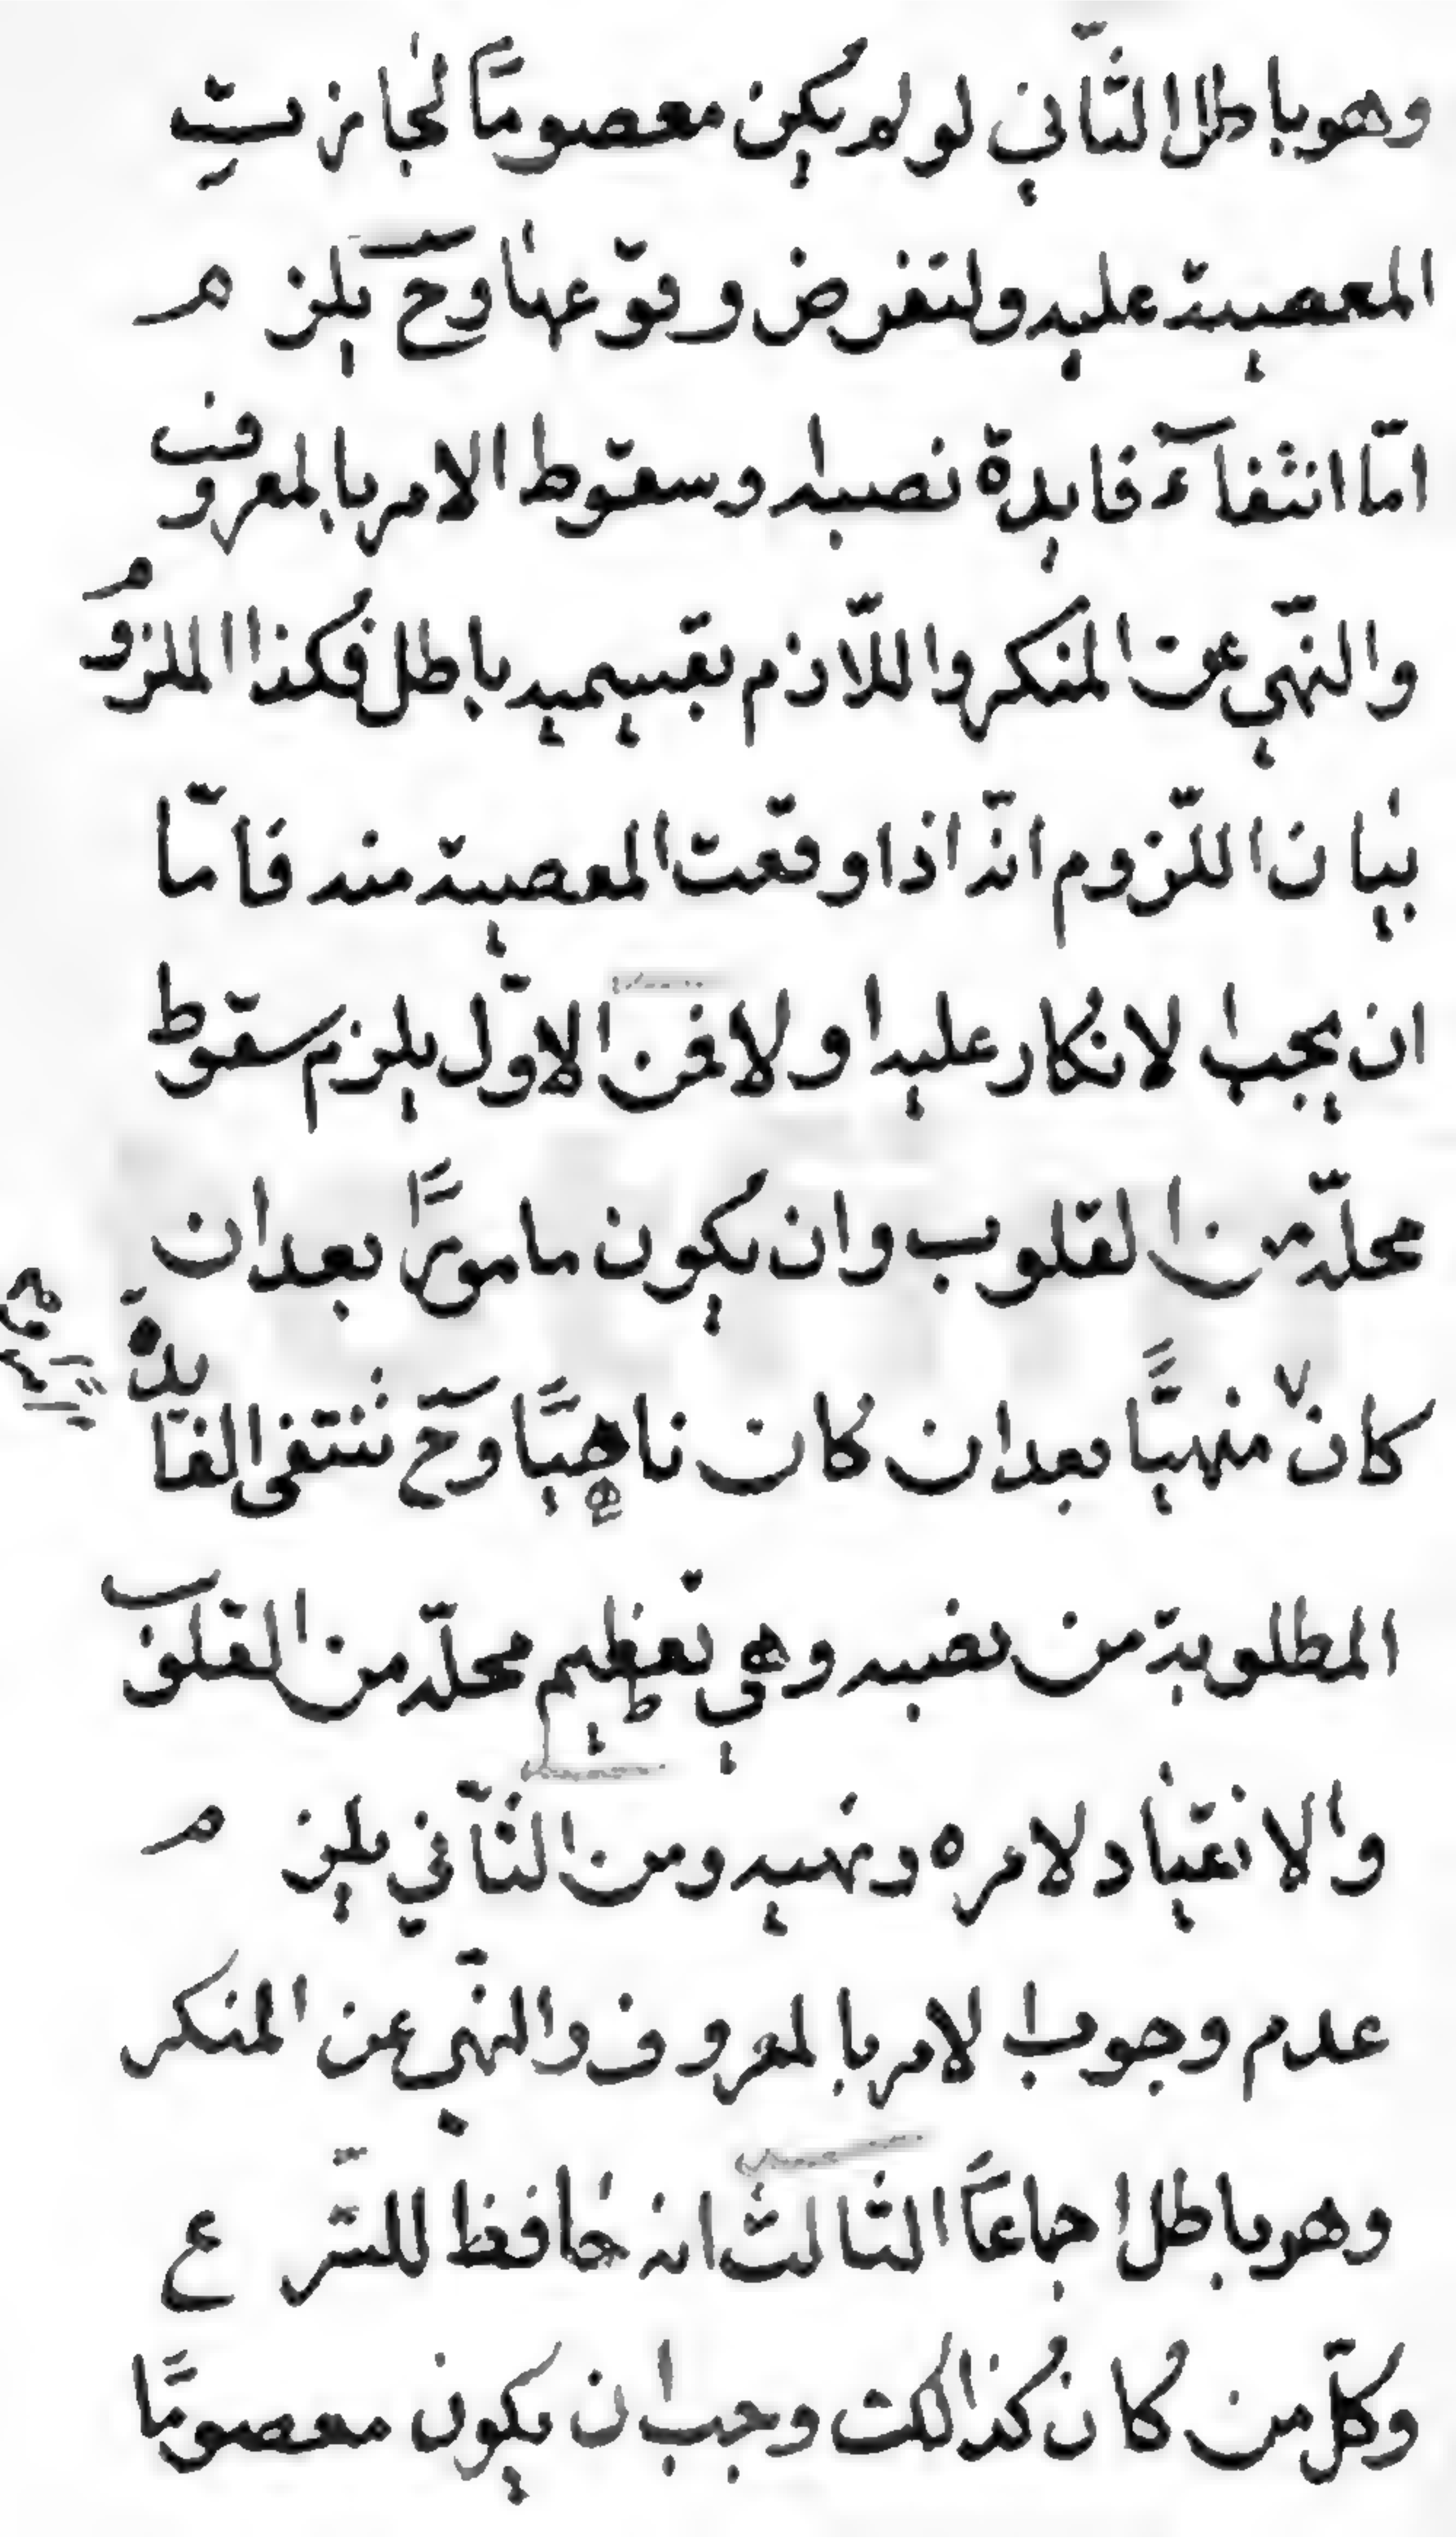 وهو باطل الثّاني لو لم يكن معصومًا لجازت
المعصية عليه ولنفرض وقوعها وحٓ يلزم
امّا انتفآء فايدة نصبه وسقوط الامر بالمعروف
والنّهي عن المنكر واللّازم بقسيميه باطل فكذا الملزوم
بيان اللّزوم انّه اذا وقعت المعصية منه فامّا
ان يجب الانكار عليه اولا فمن الاوّل يلزم سقوط
محلّه من القلوب وان يكون مامورًا بعد ان
كان منهيًّا بعد ان كان ناهيًا وحٓ تنتفى الفايدة
المطلوبة من نصبه وهي تعظيم محلّه من القلوب
والانقياد لامره ونهيه ومن الثّاني يلزم
عدم وجوب الامر بالمعروف والنّهي عن المنكر
وهو باطل اجماعًا الثالث انه حافظ للشّرع
وكلّ من كان كذالك وجب ان يكون معصومًا